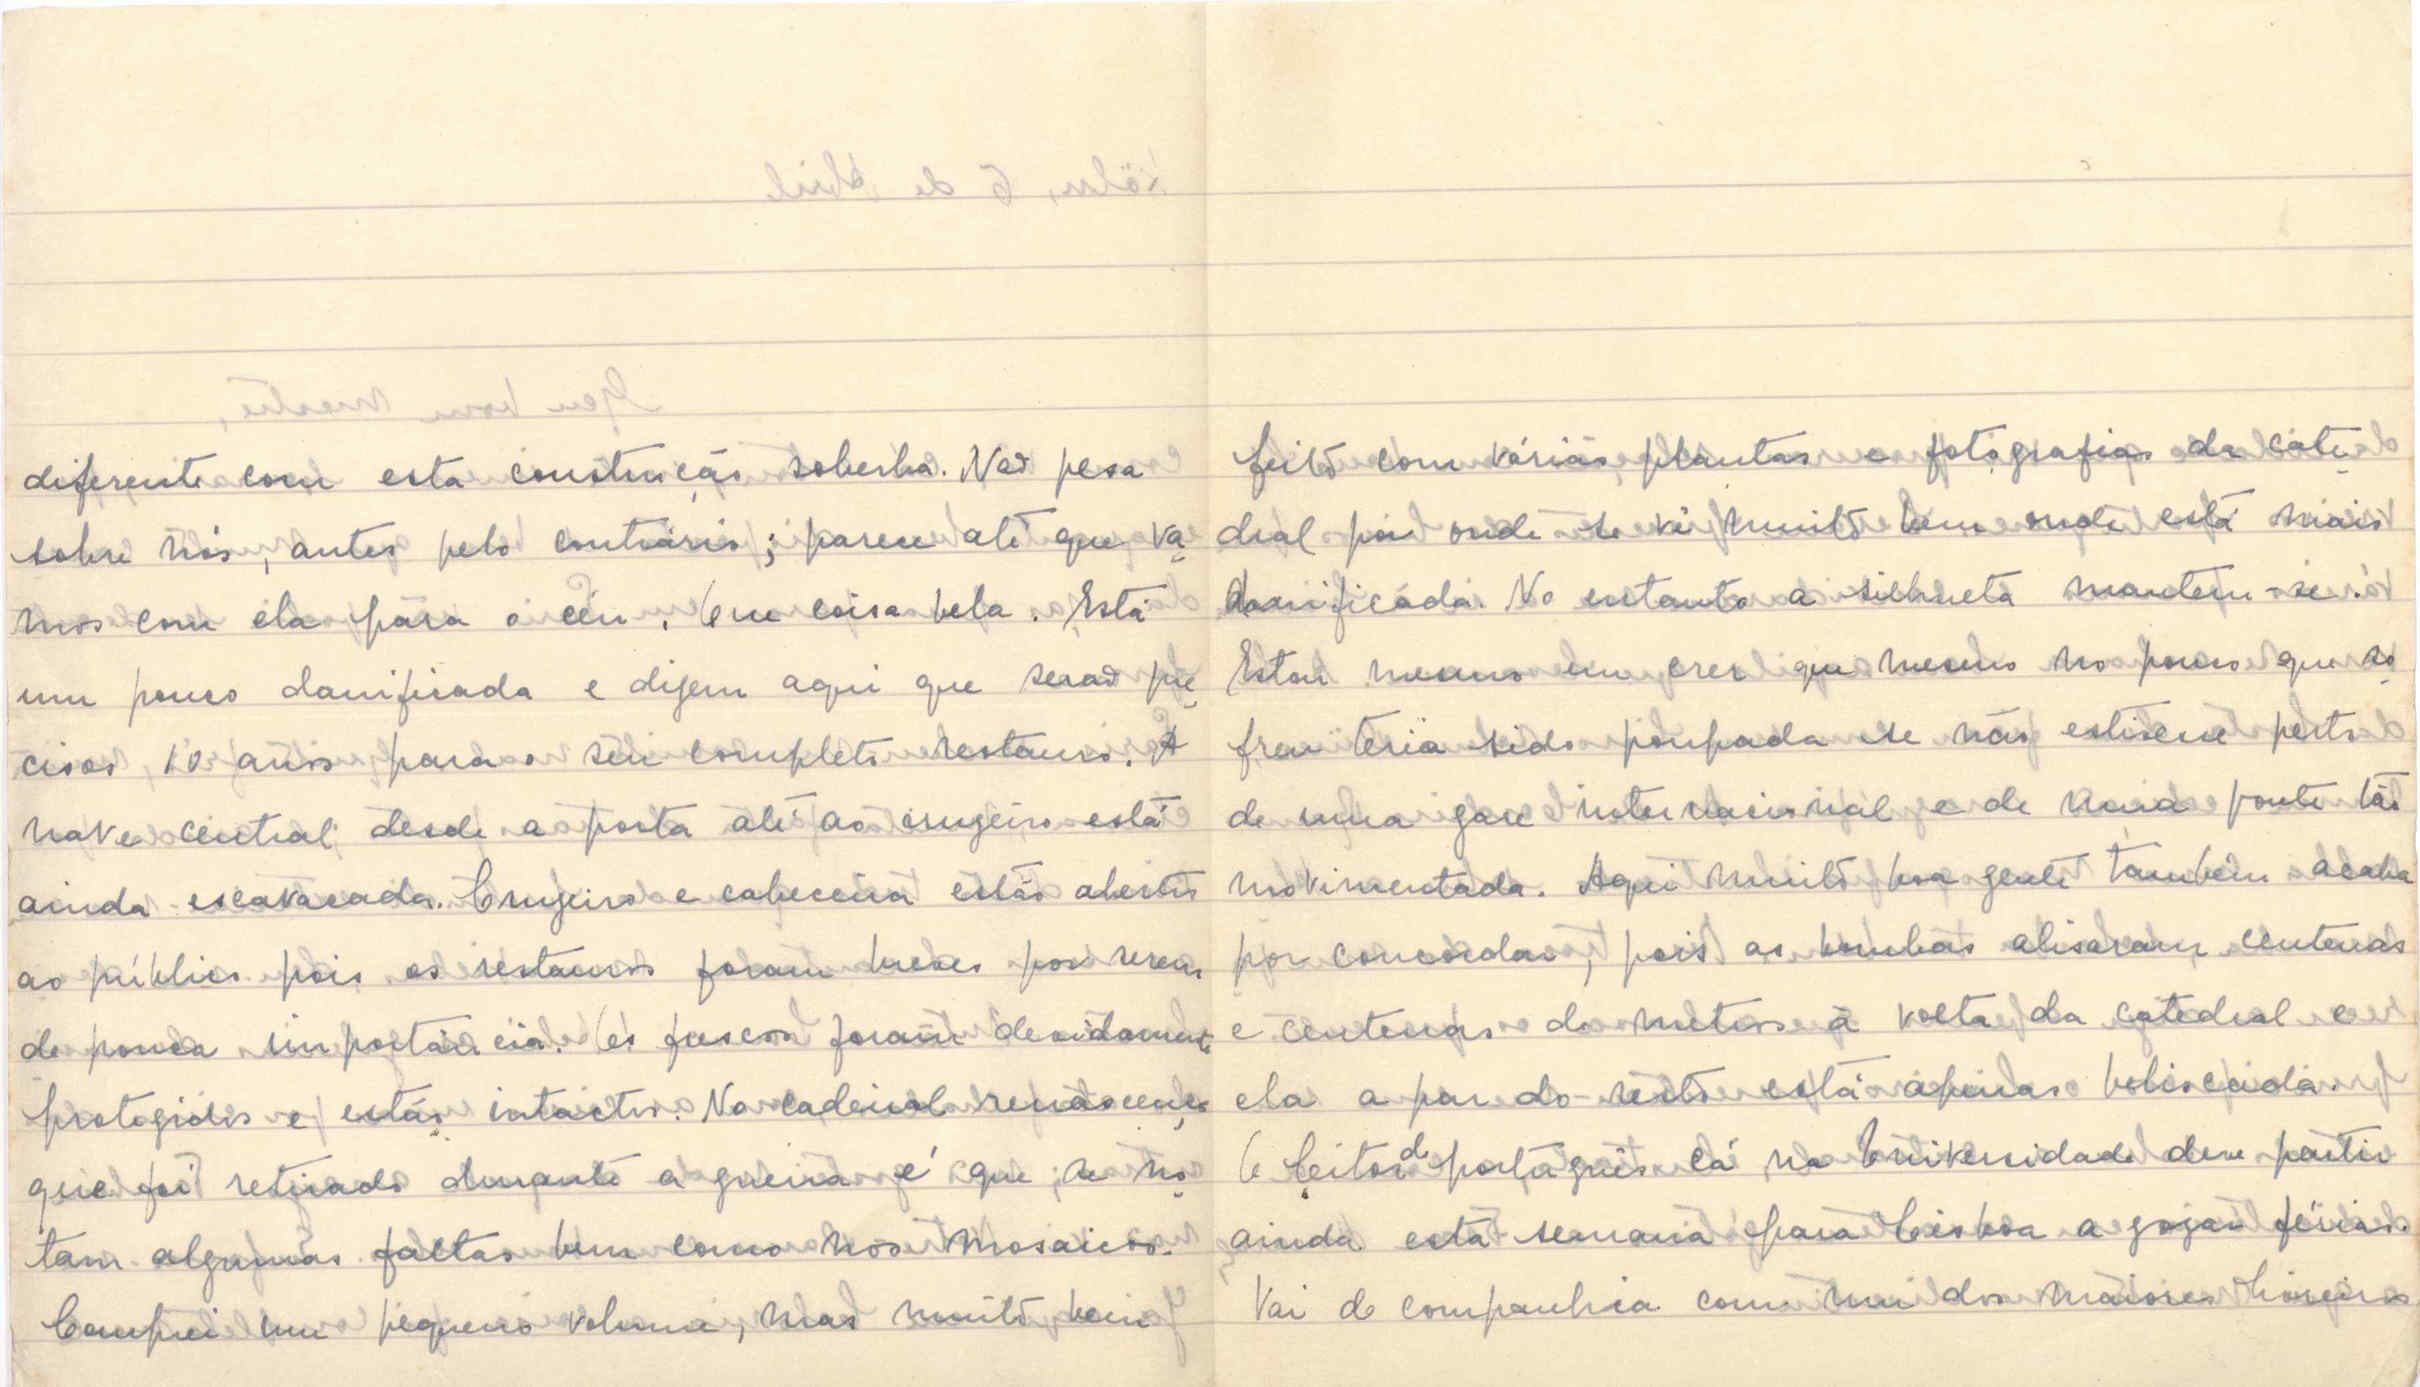 diferente com esta construção soberba. Não pesa
sobre nós, antes pelo contrário; parece até que va-
mos com ela para o céu. Que coisa bela. Está
um pouco danificada e dizem aqui que serão pre-
cisos 10 anos para o seu completo restauro. A
nave central desde a porta até ao cruzeiro está
ainda escavacada. Cruzeiro e cabeceira estão abertos
ao público pois os restauros foram breves por serem
de pouca importância. Os frescos foram devidamente
protegidos e estão intactos. No cadeiral renascença
que foi retirado durante a guerra é que se no-
tam algumas faltas bem como nos mosaicos.
Comprei um pequeno volume, mas muito bem
feito com várias plantas e fotografias da cate-
dral por onde se vê muito bem onde está mais
danificada. No entanto a silhueta mantem-se.
Estou mesmo em crer que mesmo no pouco que so-
freu teria sido poupada se não estivesse perto
de uma gare internacional e de uma ponte tão
movimentada. Aqui muito boa gente também acaba
por concordar, pois as bombas alisaram centenas
e centenas de metros à volta da catedral e
ela a par do resto está apenas beliscada.
O leitor de português cá na Universidade deve partir
ainda esta semana para Lisboa a gozar férias.
Vai de companhia com um dos maiores livreiros